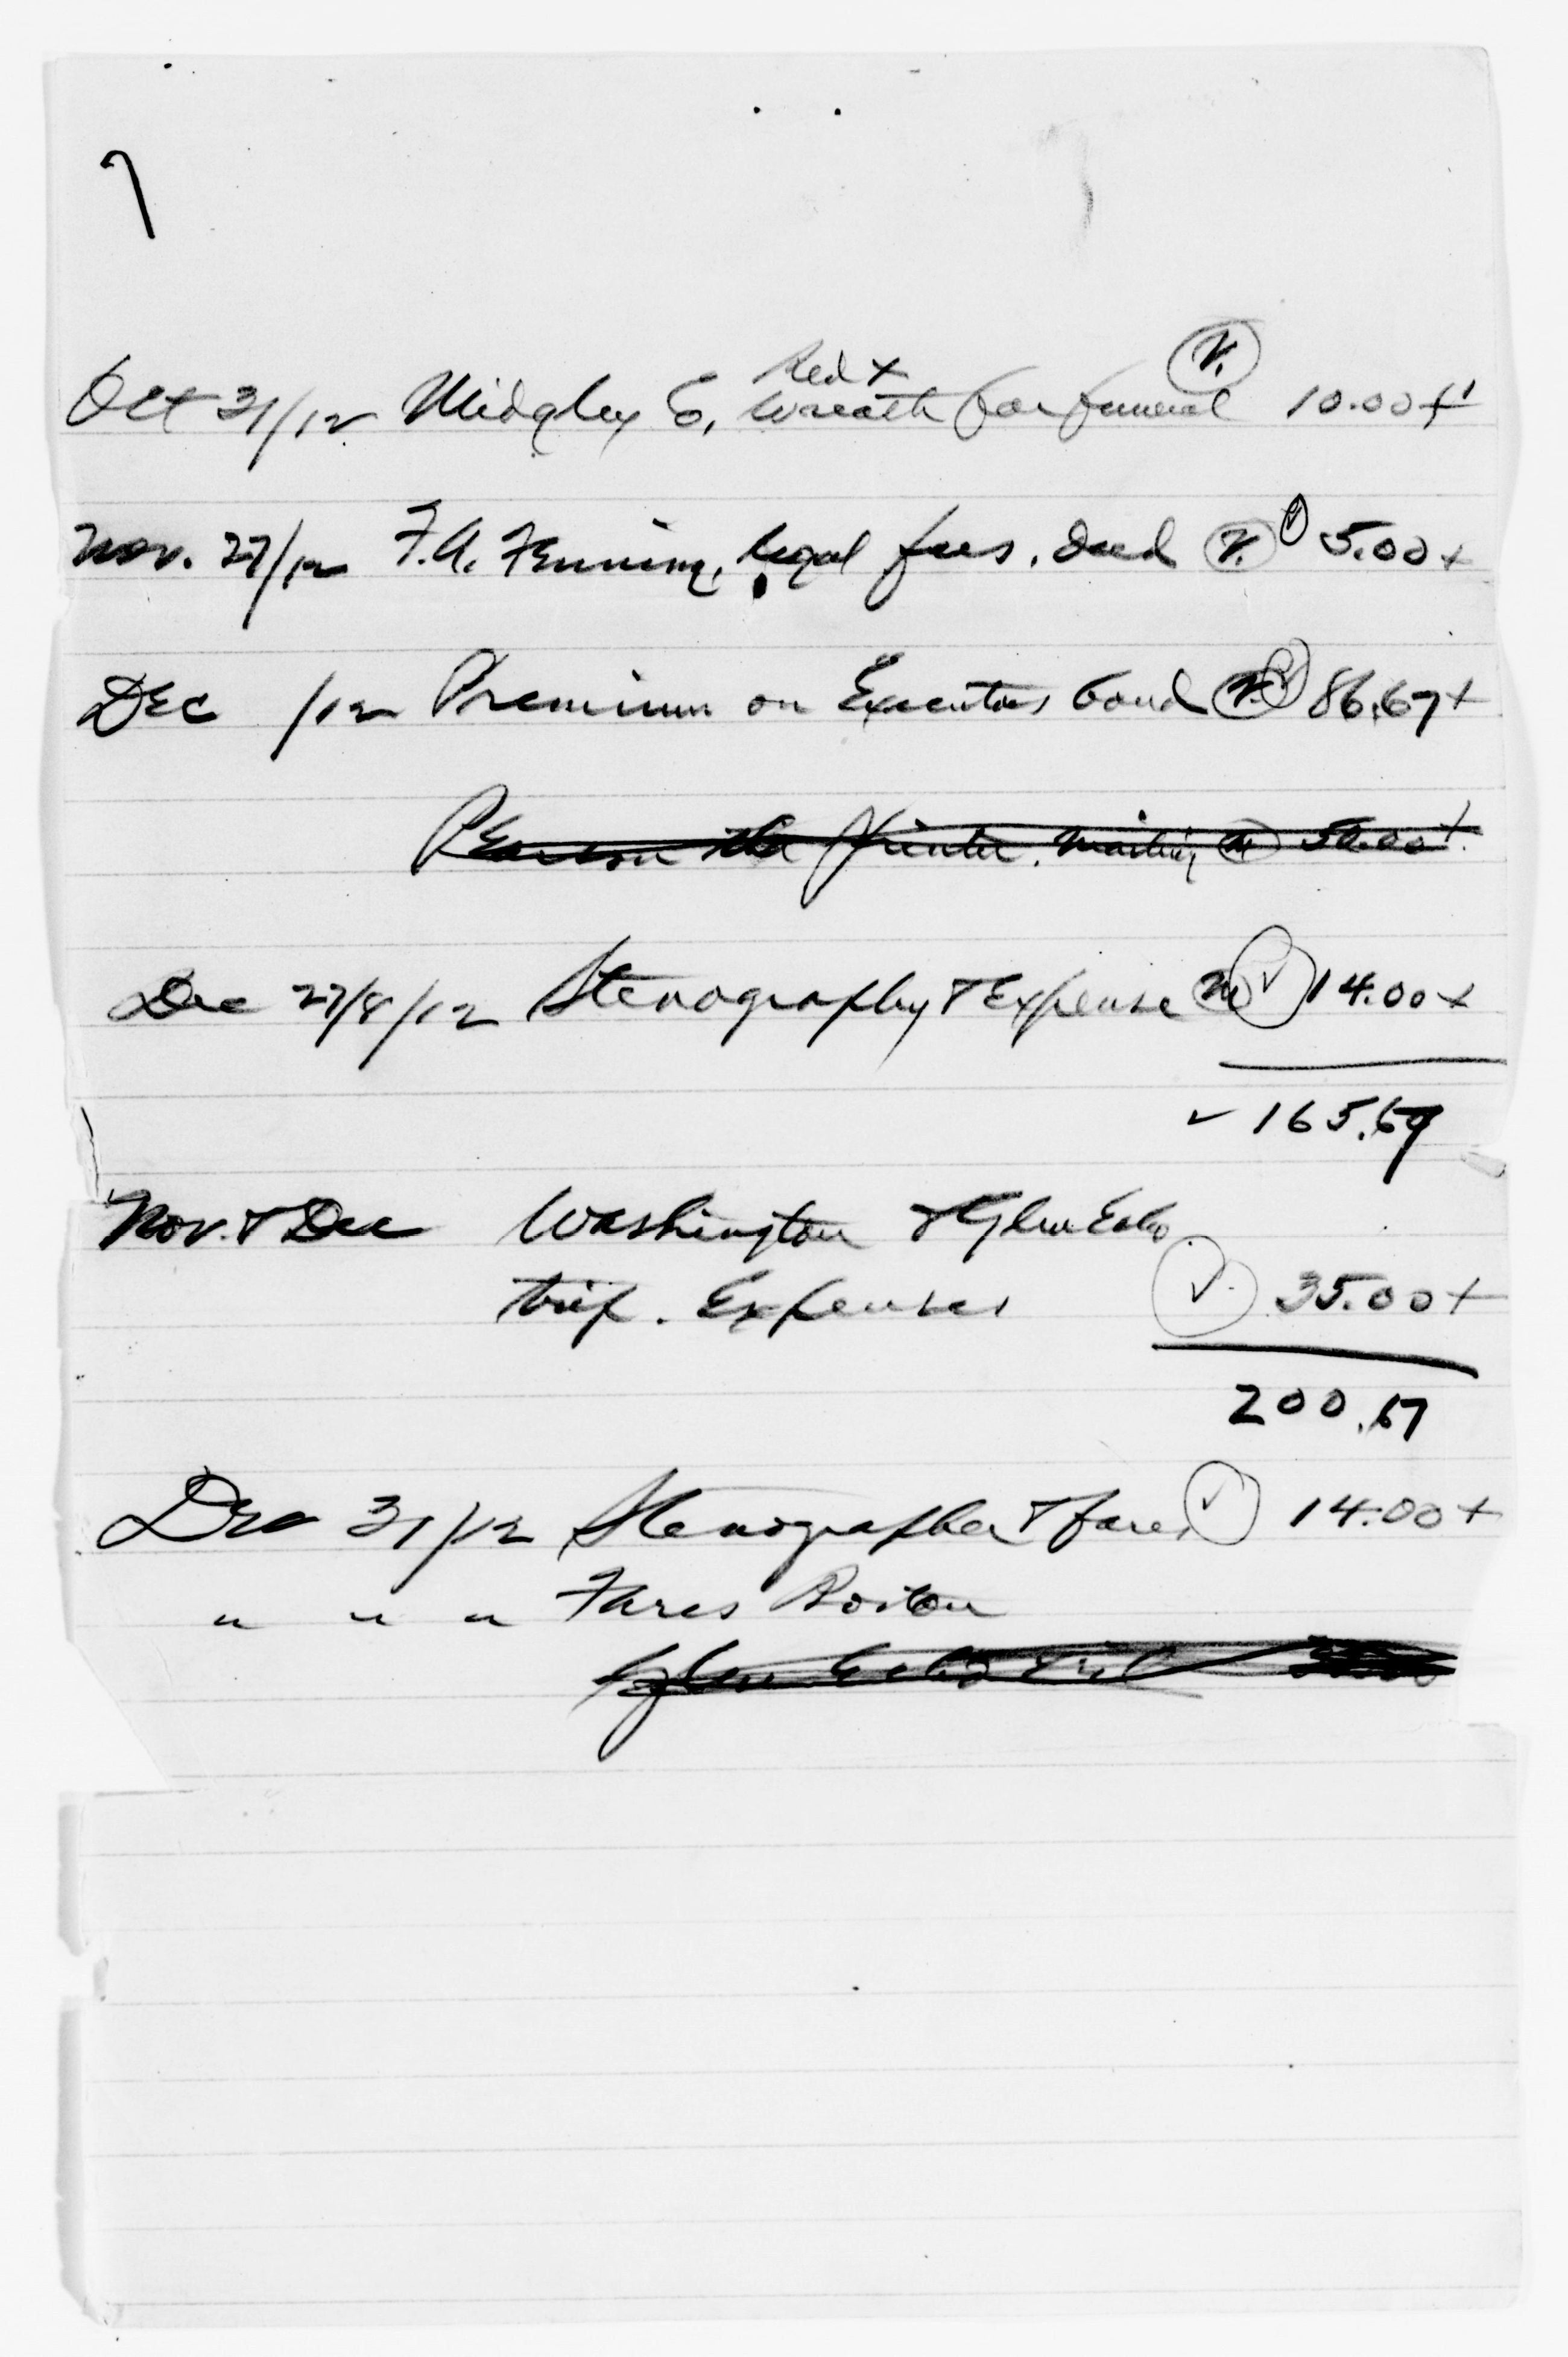 Red +
Oct 31/12 Midgley E, Wreath for funeral V. 10.00+
Nov. 27/12 F.A. Fenning, legal fees, deed V. ✓ 5.00+
Dec /12 Premium on Executors bond V. ✓ 86.67+
Pearson the Printer, 50.00+
Dec 27/8/12 Stenography & Expense ✓ 14.00+
✓ 165.67
Nov. & Dec Washington & Glen Echo
trip. Expenses ✓ 35.00+
200.67
Dec 31/12 Stenographer & fares ✓ 14.00+
" " " Fares Boston
Glen Echo trip